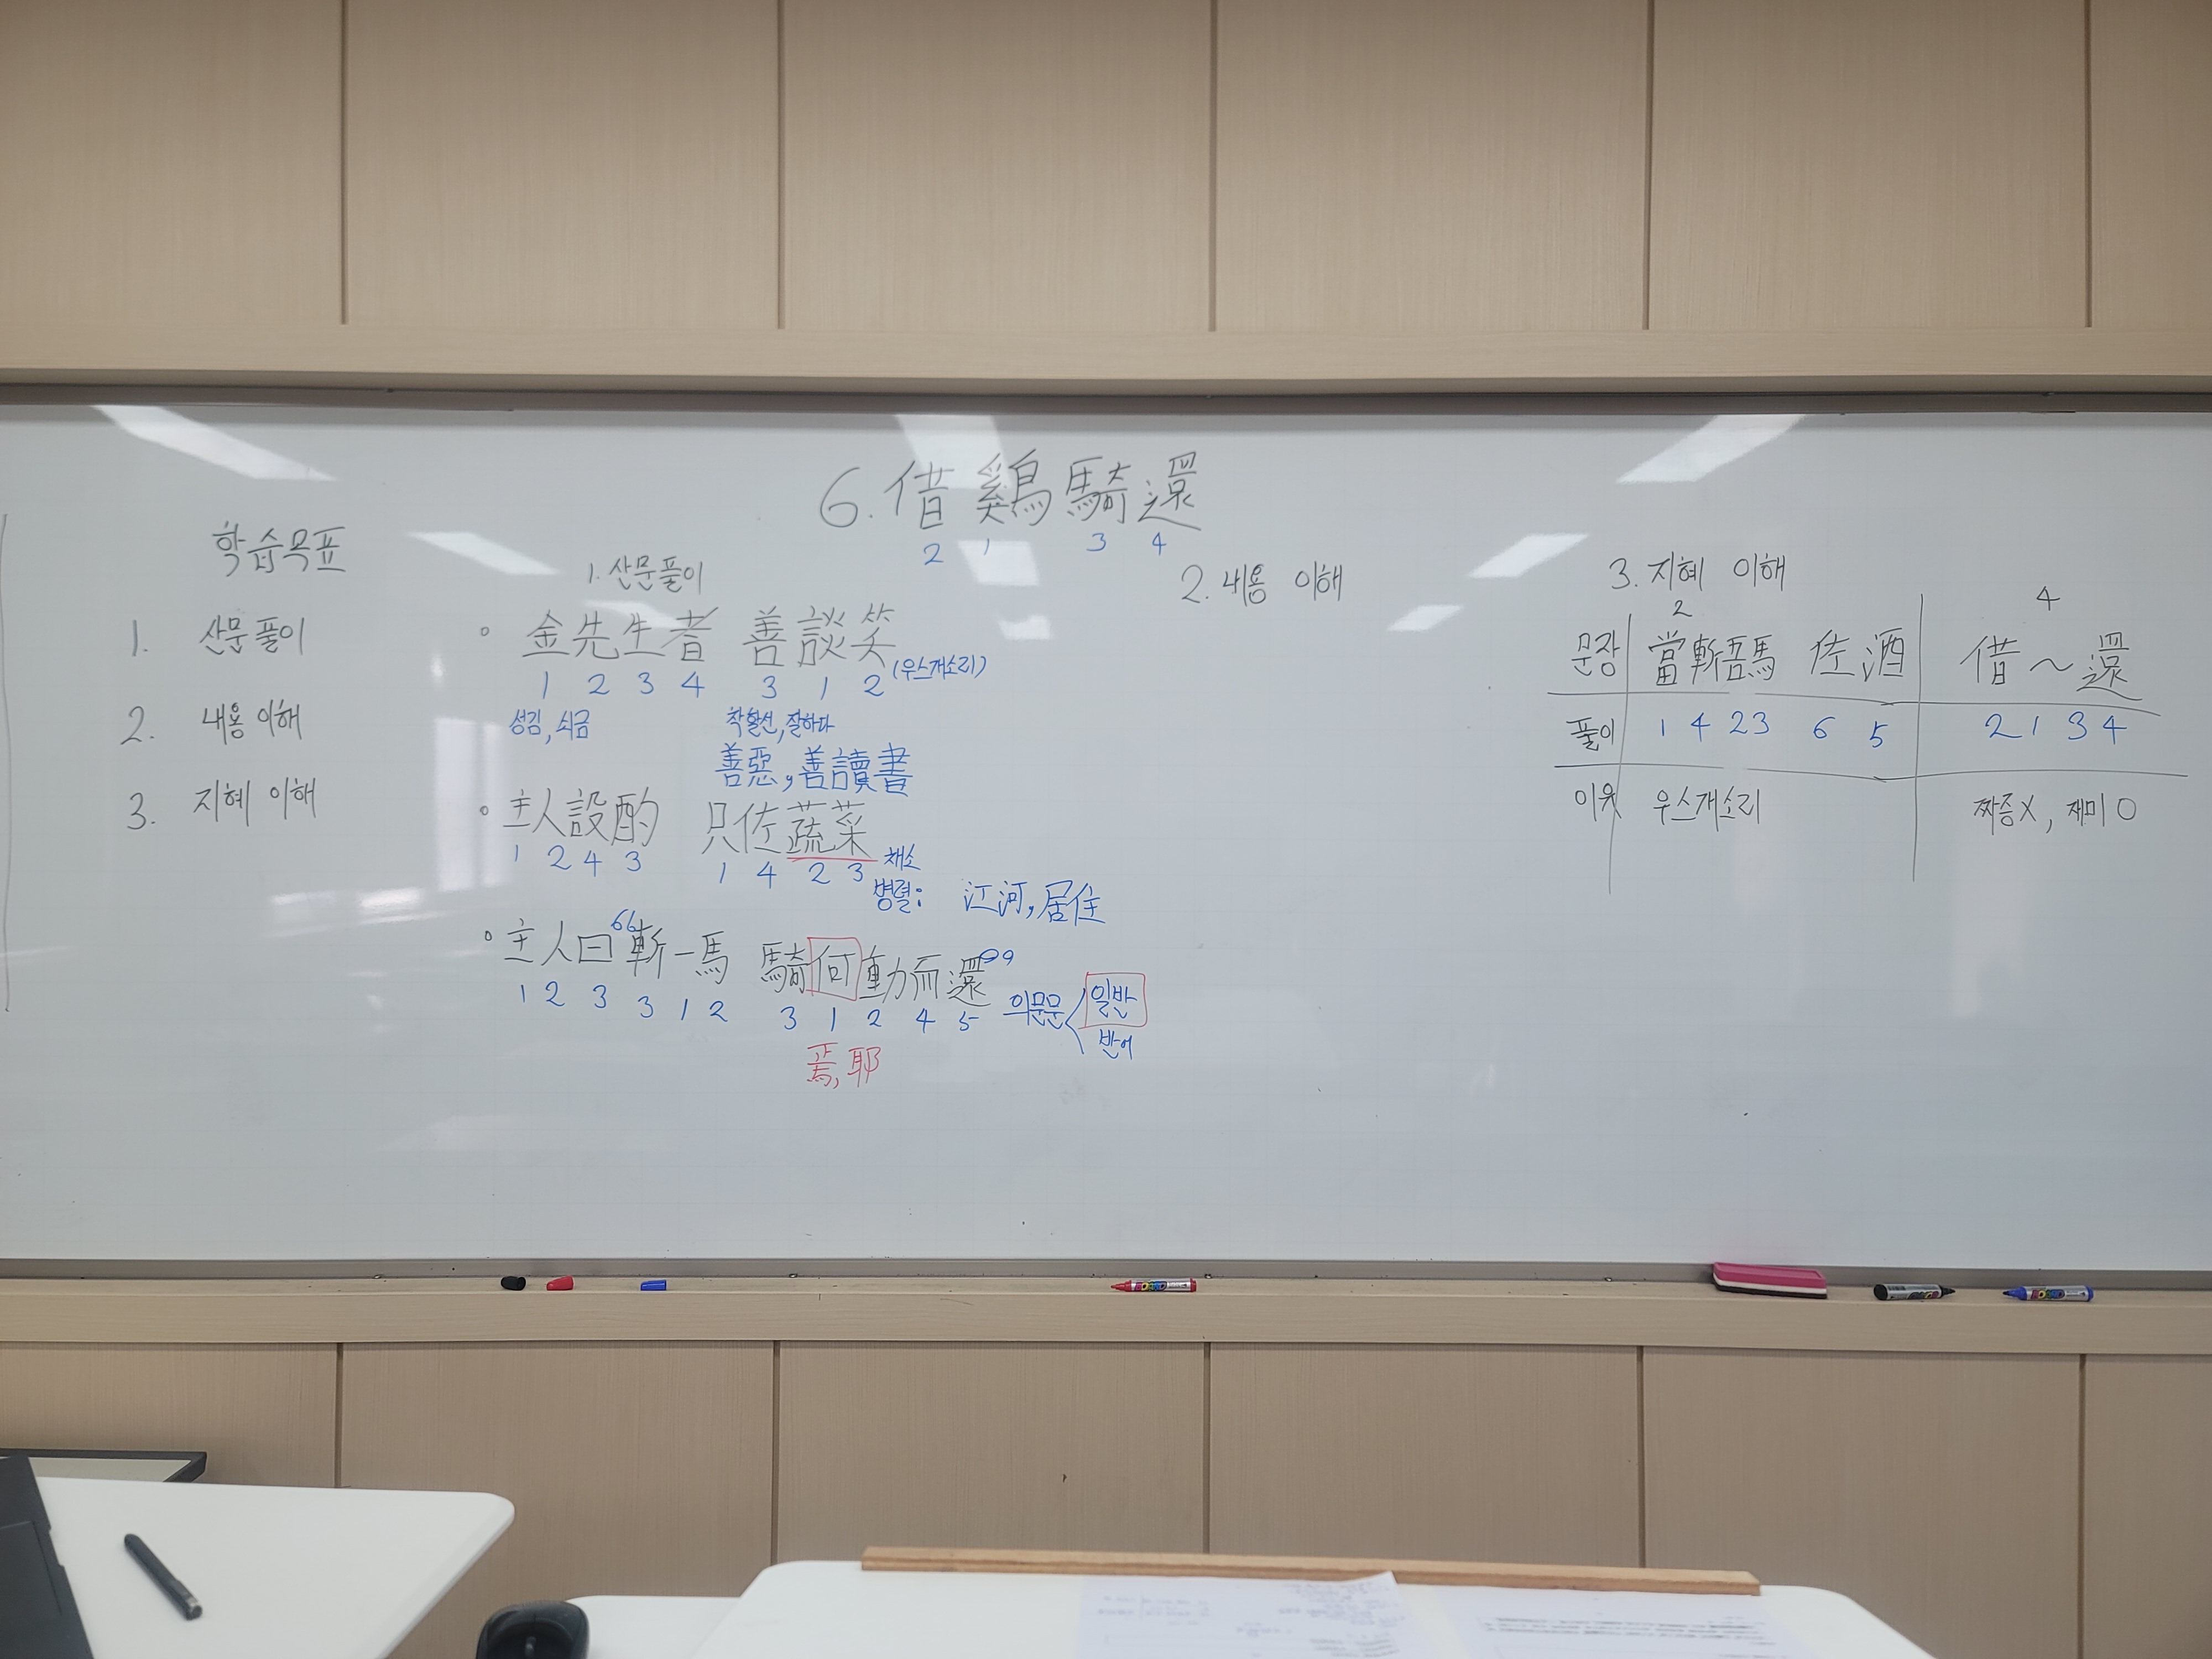 6. 借鷄騎還
2 1 3 4
학습목표
1. 산문풀이
2. 내용 이해
3. 지혜 이해
1. 산문풀이
金先生者 善談笑 (우스개소리)
1 2 3 4 3 1 2
성김, 쇠금 착할선, 잘하다
善惡, 善讀書
主人設酌 只佐蔬菜
1 2 4 3 1 4 2 3 채소
병렬: 江河, 居住
主人曰 斬一馬 騎何動而還
1 2 3 3 1 2 3 1 2 4 5 의문문 일반
반어
焉, 耶
2. 내용 이해
3. 지혜 이해
2 4
문장 當斬吾馬 佐酒 借~還
풀이 1 4 2 3 6 5 2 1 3 4
이유 우스개소리 짜증X, 재미O